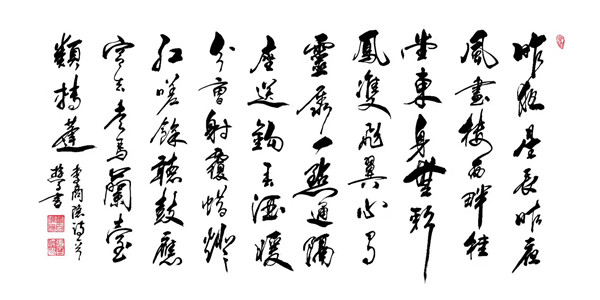 昨夜星辰昨夜
風畫樓西畔桂
堂東身無彩
鳳雙飛翼心有
靈犀一點通隔
座送鉤春酒暖
分曹射覆蜡燈
紅嗟餘聽鼓應
官去走馬蘭臺
類轉蓬
李商隱詩
書